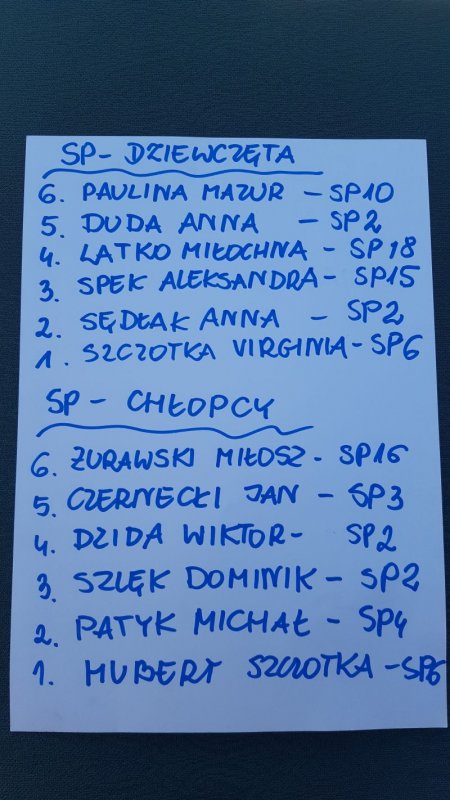 SP - DZIEWCZĘTA
6. PAULINA MAZUR - SP10
5. DUDA ANNA - SP2
4. LATKO MIŁOCHNA - SP18
3. SPEK ALEKSANDRA - SP15
2. SĘDŁAK ANNA - SP2
1. SZCZOTKA VIRGINIA - SP6
SP - CHŁOPCY
6. ŻURAWSKI MIŁOSZ - SP16
5. CZERNECKI JAN - SP3
4. DZIDA WIKTOR - SP2
3. SZLĘK DOMINIK - SP2
2. PATYK MICHAŁ - SP4
1. HUBERT SZCZOTKA - SP6